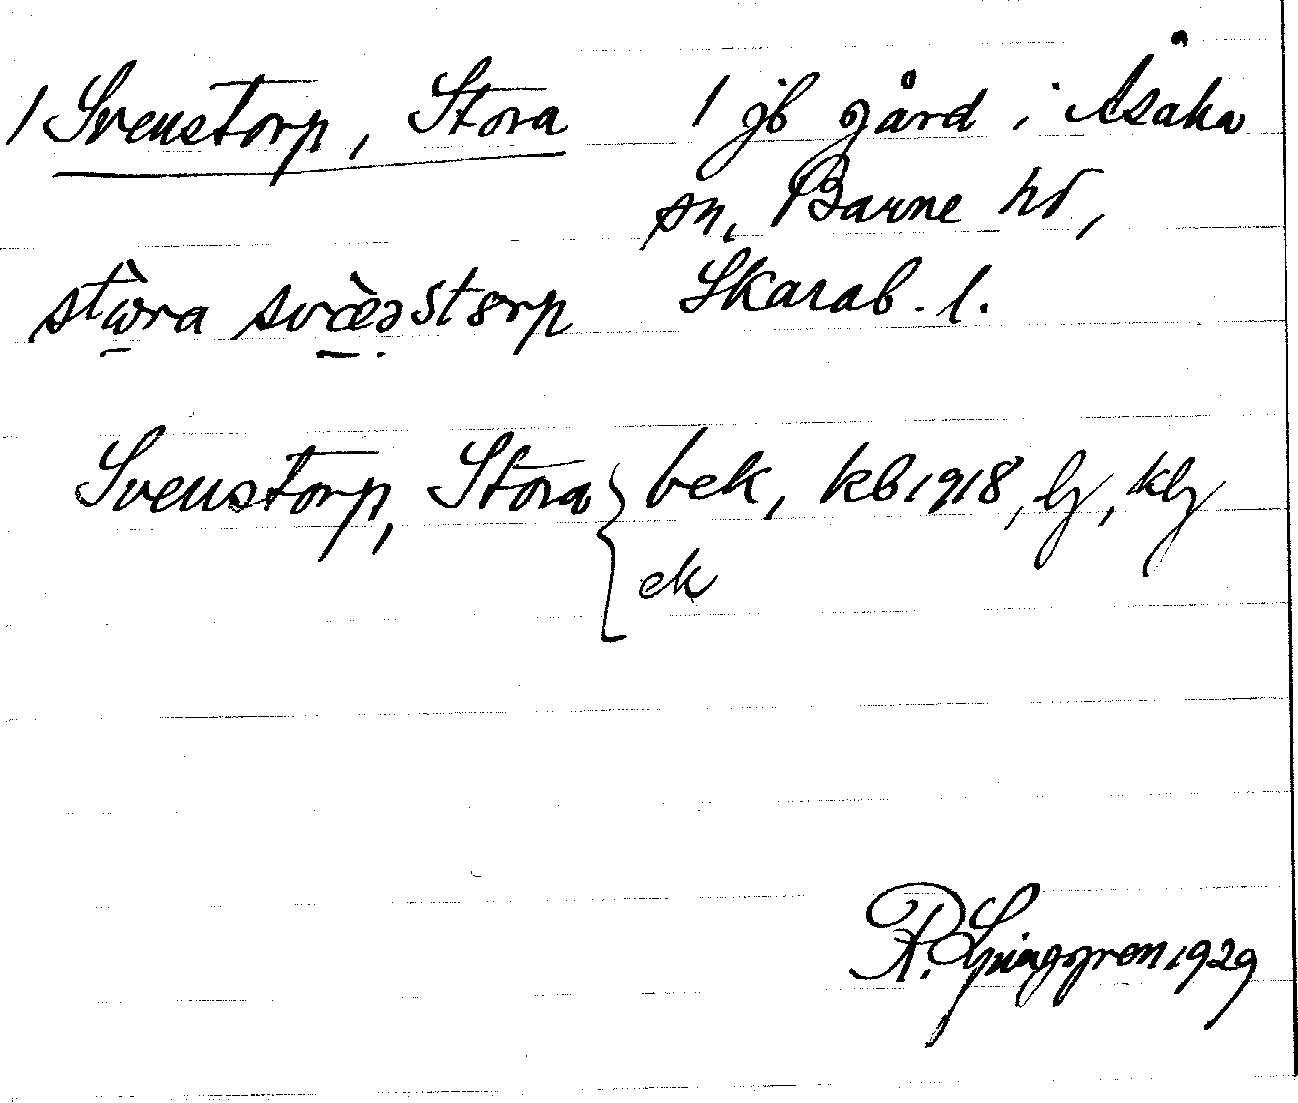 1 Svenstorp, Stora 1 jb gård i Åsaka
sn, Barne hd,
Skarab. l.
Svenstorp, Stora { bek, kb 1918, lj, klj
ek
R. Ljunggren 1929